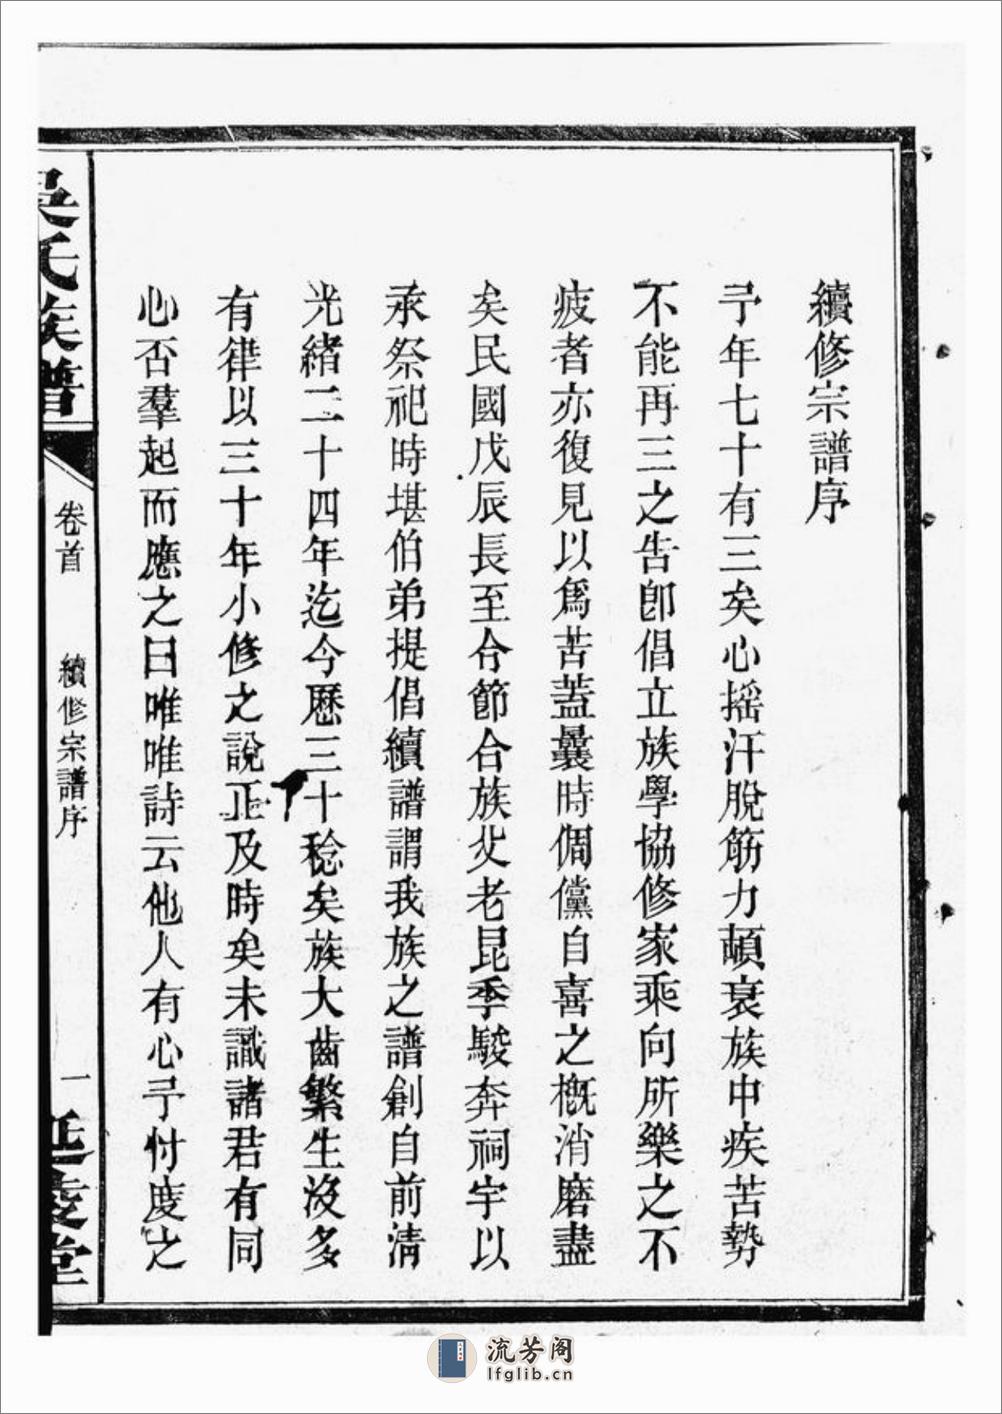 續修宗譜序
予年七十有三矣心搖汗脫筋力頓衰族中疾苦勢
不能再三之告卽倡立族學協修家乘向所樂之不
疲者亦復見以爲苦蓋曩時倜儻自喜之概消磨盡
矣民國戊辰長至合節合族父老昆季駿奔祠宇以
承祭祀時堪伯弟提倡續譜謂我族之譜創自前淸
光緒二十四年迄今歷三十稔矣族大齒繁生沒多
有律以三十年小修之說正及時矣未識諸君有同
心否羣起而應之曰唯唯詩云他人有心予忖度之
吳氏族譜
卷首
續修宗譜序
一
延陵堂
流芳阁
lfglib.cn